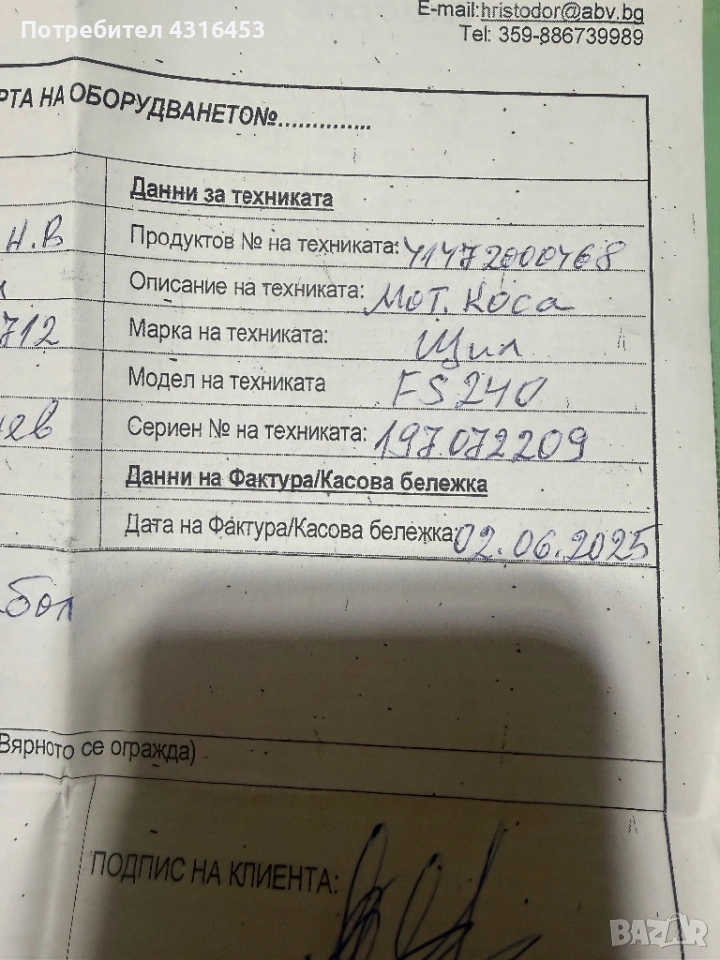 Потребител 4316453
E-mail:hristodor@abv.bg
Tel: 359-886739989
РТА НА ОБОРУДВАНЕТО№..............
Данни за техниката
Н.В
Продуктов № на техниката: 41472000468
Описание на техниката: Мот. Коса
712
Марка на техниката: Щил
Модел на техниката FS 240
ев
Сериен № на техниката: 197072209
Данни на Фактура/Касова бележка
Дата на Фактура/Касова бележка: 02.06.2025
бол
Вярното се огражда)
ПОДПИС НА КЛИЕНТА:
BAZAR